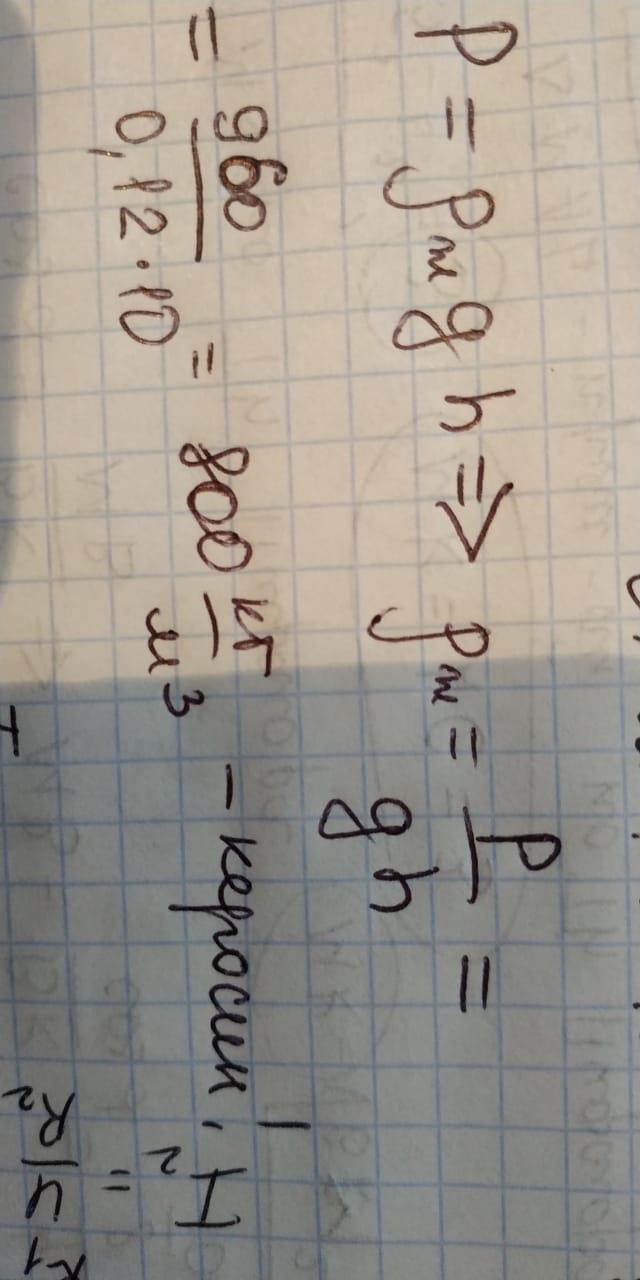 P = ρж g h ⇒ ρж = P / gh =
= 960 / 0,12 · 10 = 800 кг/м³ – керосин.